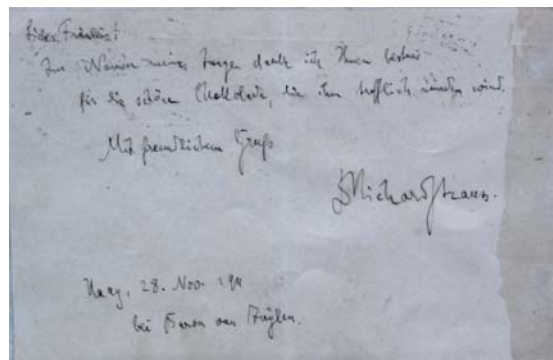 Liebes Fräulein!
Im Namen meines Jungen danke ich Ihnen bestens
für die schöne Chokolade, die ihm trefflich munden wird.
Mit freundlichem Gruß
DrRichardStrauss.
Haag, 28. Nov.
bei Baron van Zuylen.